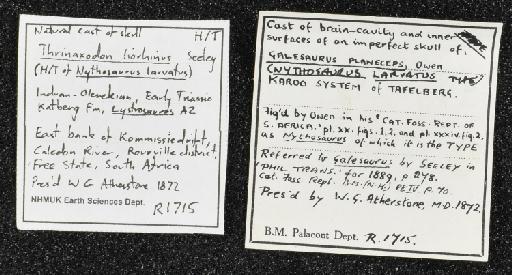 Natural cast of skull H/T
Thrinaxodon liorhinus Seeley
(H/T of Nythosaurus larvatus)
Induan-Olenekian, Early Triassic
Katberg Fm, Lystrosaurus AZ
East bank of Kommissiedrift,
Caledon River, Rouxville district,
Free State, South Africa
Pres'd W G Atherstone 1872
NHMUK Earth Sciences Dept. R1715
Cast of brain-cavity and inner
surfaces of an imperfect skull of:
GALESAURUS PLANICEPS, Owen
(NYTHOSAURUS LARVATUS TYPE)
KAROO SYSTEM OF TAFELBERG.
Fig'd by OWEN in his "CAT. FOSS. REPT. OF
S. AFRICA," pl. xx. figs. 1, 2, and pl. xxxiv. fig. 2.
as Nythosaurus of which it is the TYPE
Referred to Galesaurus by SEELEY in
PHIL. TRANS. for 1889, p. 278.
Cat. Foss. Rept. Pt IV p. 70.
Pres'd by W. G. Atherstone, M.D. 1872.
B.M. Palaeont Dept. R. 1715.